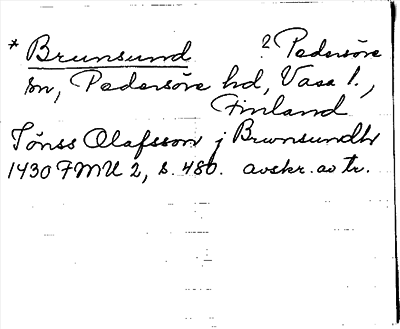 * Brunsund ? Pedersöre
sn, Pedersöre hd, Vasa l.,
Finland
Jönss Olafsson j Brwnsundh
1430 FMU 2, s. 480. avskr. av tr.